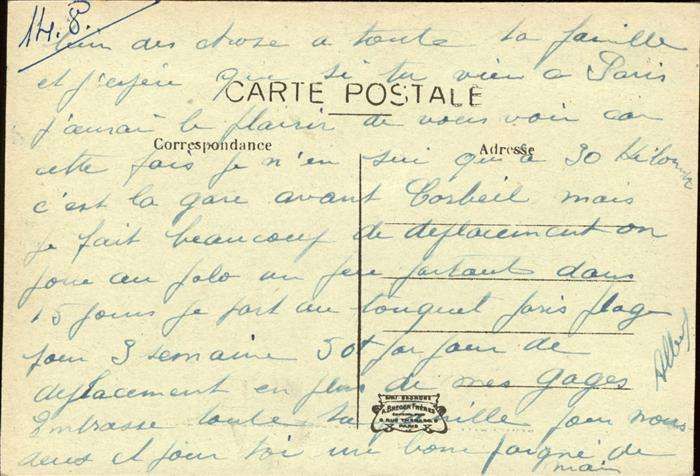 14.8.
bien des chose a toute ta famille
et j'espére que si tu vien a Paris
CARTE POSTALE
j'aurai le plaisir de vous voir car
Correspondance Adresse
cette fois je n'en sui qu'a 30 kilom
c'est la gare avant Corbeil mais
je fait beaucoup de deplacement on
joue au polo un peu partout dans
15 jours je part au touquet paris plage
pour 3 semaine 50f par jour de
deplacement en plus de mes gages
Albert
A. BREGER FRÈRES
PARIS
Embrasse toute ta famille pour nous
deux et pour toi une bonne poigné de
main